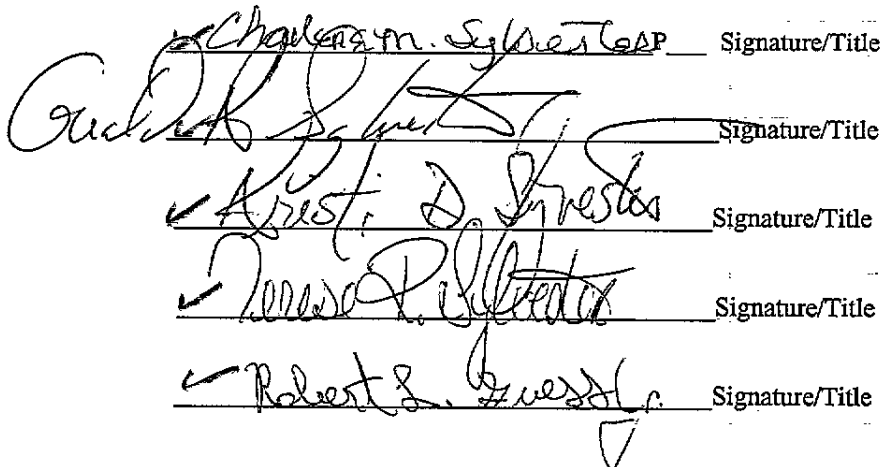 M. Sylvester P Signature/Title
R Sylvester Signature/Title
Kristi D Sylvester Signature/Title
Terese R. Sylvester Signature/Title
Robert L. Guess Jr. Signature/Title